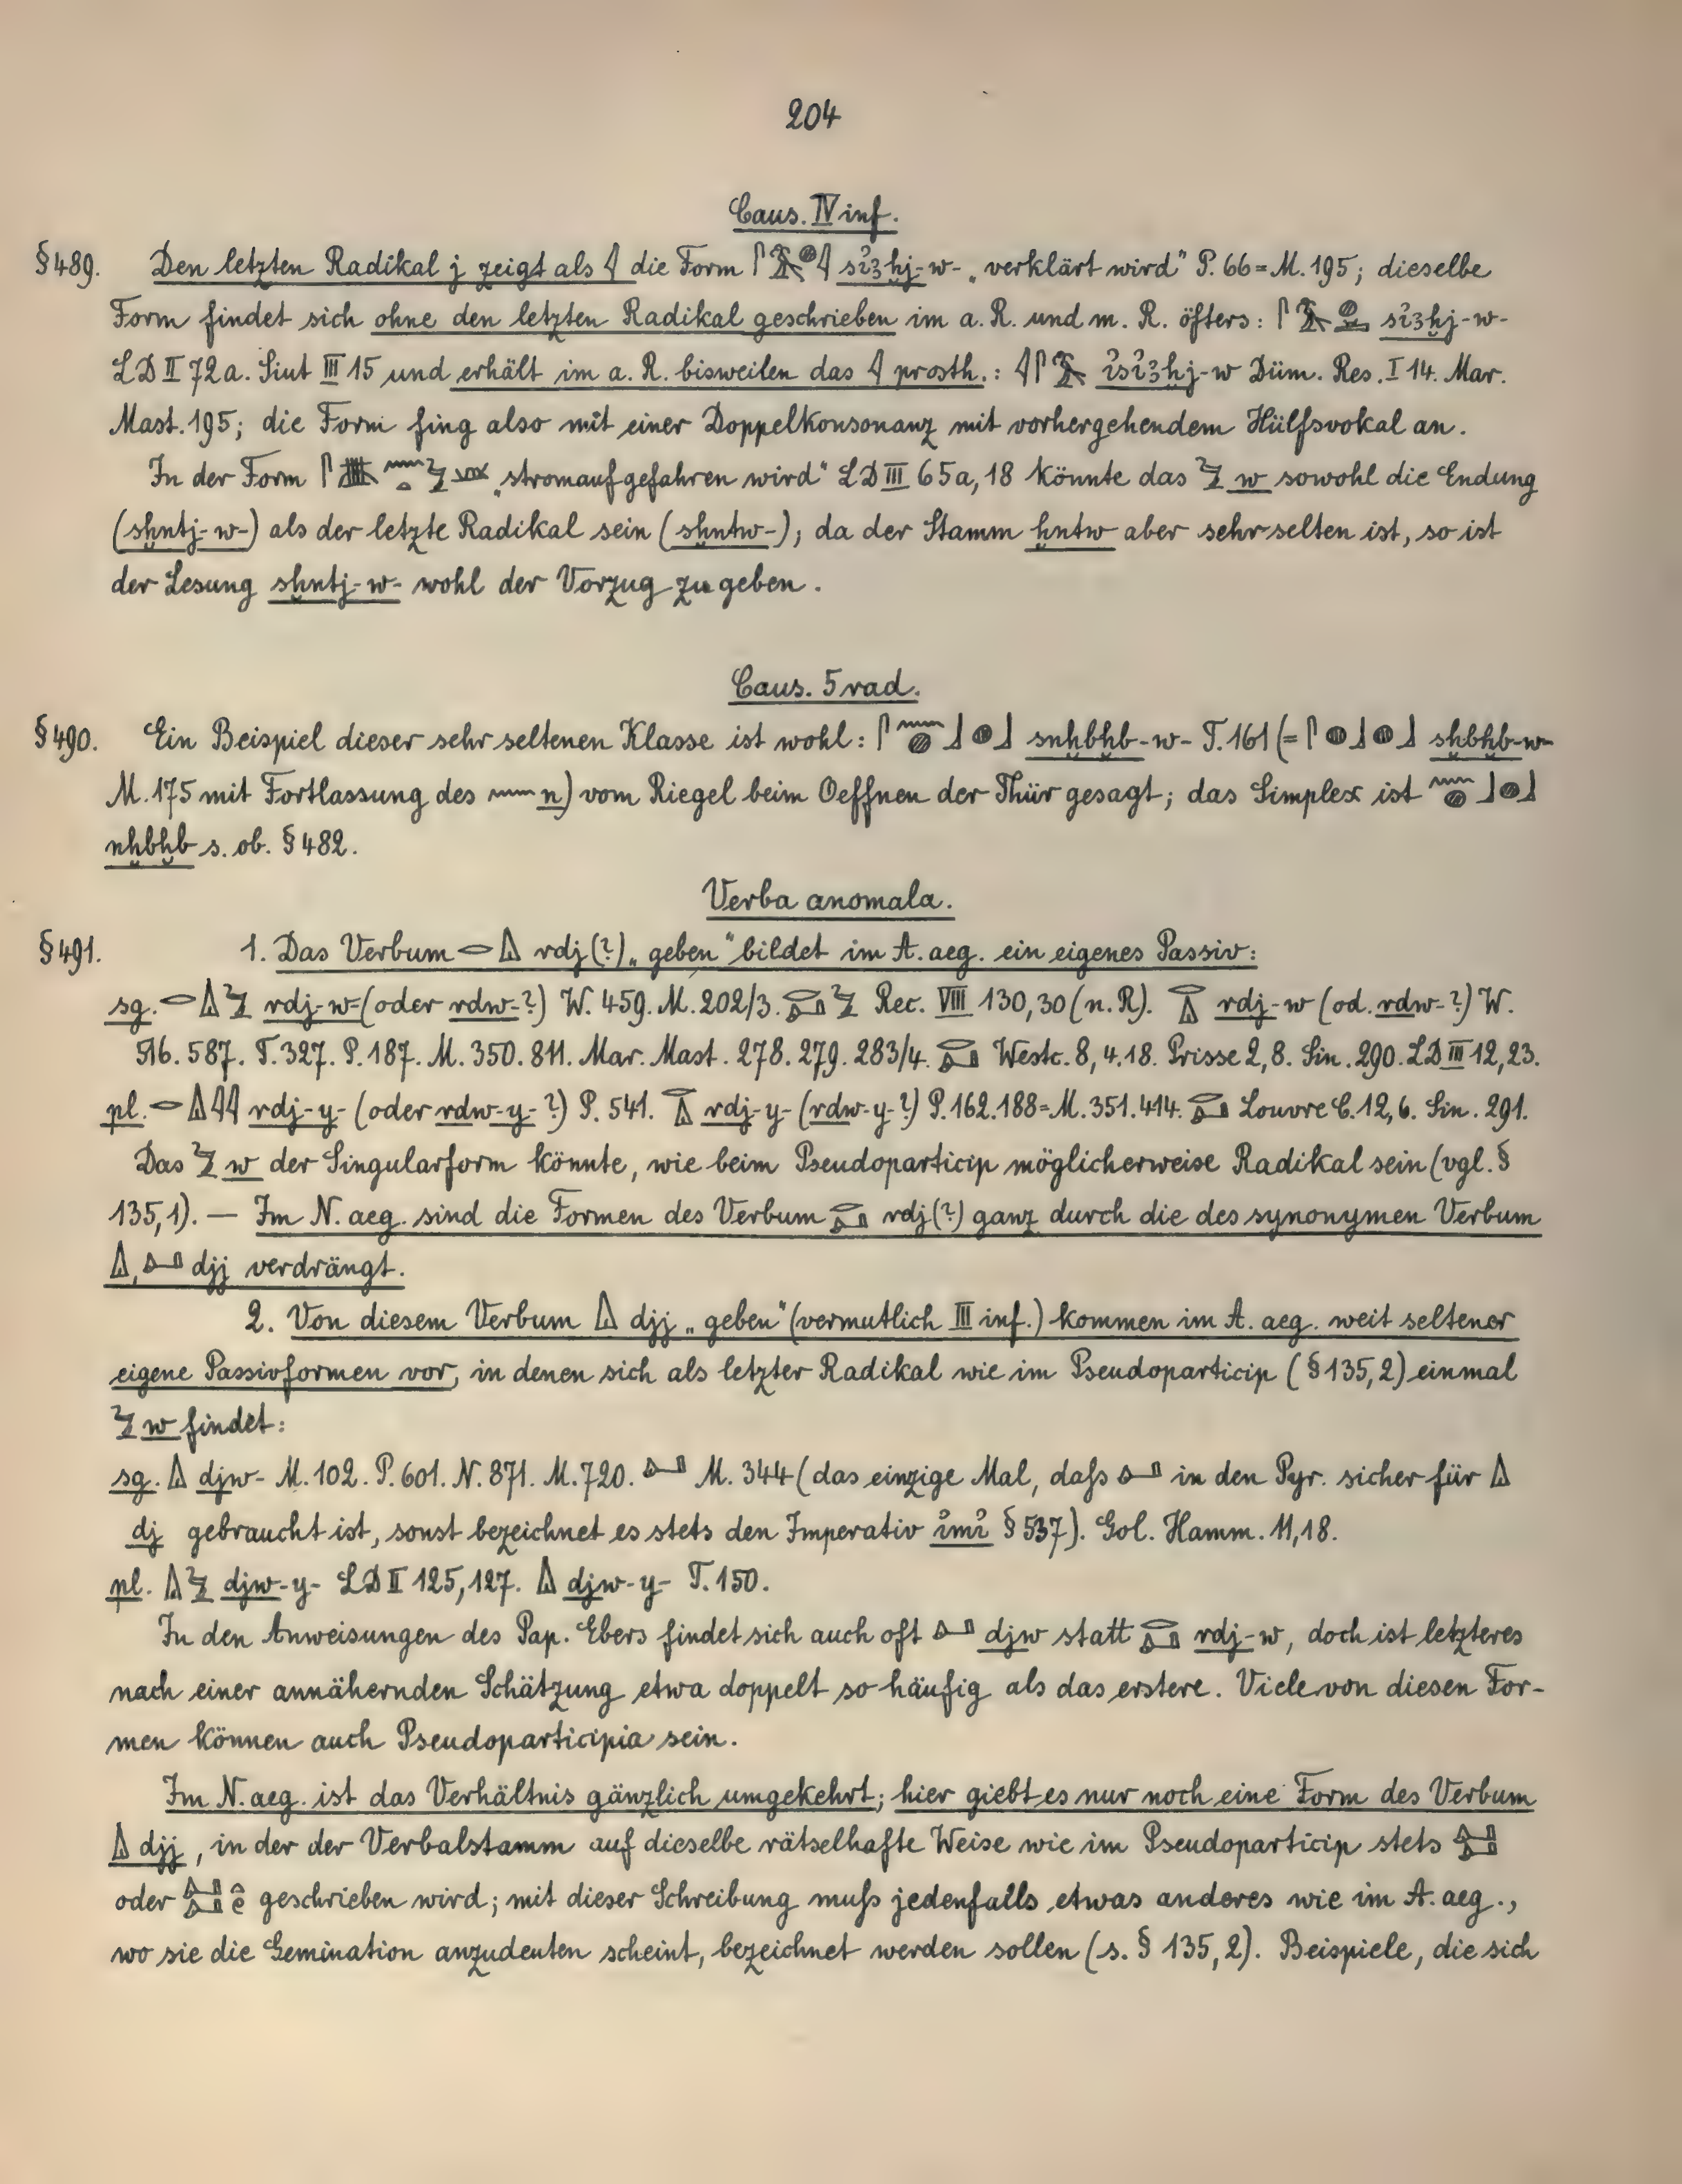 204
Caus. IV inf.
§489. Den letzten Radikal j zeigt als 𓇋 die Form 𓋴𓅜𓐍𓇋 sı̓ꜣḫj-w- „verklärt wird" P. 66 = M. 195; dieselbe
Form findet sich ohne den letzten Radikal geschrieben im a. R. und m. R. öfters: 𓋴𓅜𓐍 sı̓ꜣḫj-w-
LD II 72a. Siut III 15 und erhält im a. R. bisweilen das 𓇋 prosth.: 𓇋𓋴𓅜 ı̓sı̓ꜣḫj-w Düm. Res. I 14. Mar.
Mast. 195; die Form fing also mit einer Doppelkonsonanz mit vorhergehendem Hülfsvokal an.
In der Form 𓋴𓏃𓈖𓏏𓅱 „stromauf gefahren wird" LD III 65a, 18 könnte das 𓅱 w sowohl die Endung
(sḫntj-w-) als der letzte Radikal sein (sḫntw-); da der Stamm ḫntw aber sehr selten ist, so ist
der Lesung sḫntj-w- wohl der Vorzug zu geben.
Caus. 5 rad.
§490. Ein Beispiel dieser sehr seltenen Klasse ist wohl: 𓋴𓈖𓐍𓃀𓐍𓃀 snḫbḫb-w- T. 161 (= 𓋴𓐍𓃀𓐍𓃀 sḫbḫb-w-
M. 175 mit Fortlassung des 𓈖 n) vom Riegel beim Oeffnen der Thür gesagt; das Simplex ist 𓈖𓐍𓃀𓐍𓃀
nḫbḫb s. ob. §482.
Verba anomala.
§491. 1. Das Verbum 𓂋𓏙 rdj(?) „geben" bildet im A. aeg. ein eigenes Passiv:
sg. 𓂋𓏙𓅱 rdj-w- (oder rdw-?) W. 459. M. 202/3. 𓂋𓂞𓅱 Rec. VIII 130,30 (n. R). 𓂋𓏙 rdj-w (od. rdw-?) W.
516. 587. T. 327. P. 187. M. 350. 811. Mar. Mast. 278. 279. 283/4. 𓂋𓂞 Westc. 8, 4. 18. Prisse 2,8. Sin. 290. LD III 12, 23.
pl. 𓂋𓏙𓇋𓇋 rdj-y- (oder rdw-y-?) P. 541. 𓂋𓏙 rdj-y- (rdw-y-?) P. 162. 188 = M. 351. 414. 𓂋𓂞 Louvre C. 12, 6. Sin. 291.
Das 𓅱 w der Singularform könnte, wie beim Pseudoparticip möglicherweise Radikal sein (vgl. §
135,1). — Im N. aeg. sind die Formen des Verbum 𓂋𓂞 rdj(?) ganz durch die des synonymen Verbum
𓏙, 𓂞 djj verdrängt.
2. Von diesem Verbum 𓏙 djj „geben" (vermutlich III inf.) kommen im A. aeg. weit seltener
eigene Passivformen vor, in denen sich als letzter Radikal wie im Pseudoparticip (§135,2) einmal
𓅱 w findet:
sg. 𓏙 djw- M. 102. P. 601. N. 871. M. 720. 𓂞 M. 344 (das einzige Mal, daſs 𓂞 in den Pyr. sicher für 𓏙
dj gebraucht ist, sonst bezeichnet es stets den Imperativ ı̓mı̓ §537). Gol. Hamm. 11, 18.
pl. 𓏙𓅱 djw-y- LD II 125, 127. 𓏙 djw-y- T. 150.
In den Anweisungen des Pap. Ebers findet sich auch oft 𓂞 djw statt 𓂋𓂞 rdj-w, doch ist letzteres
nach einer annähernden Schätzung etwa doppelt so häufig als das erstere. Viele von diesen For-
men können auch Pseudoparticipia sein.
Im N. aeg. ist das Verhältnis gänzlich umgekehrt; hier giebt es nur noch eine Form des Verbum
𓏙 djj, in der der Verbalstamm auf dieselbe rätselhafte Weise wie im Pseudoparticip stets 𓂞𓂞
oder 𓂞𓂞𓏏𓏲 geschrieben wird; mit dieser Schreibung muſs jedenfalls etwas anderes wie im A. aeg.,
wo sie die Gemination anzudeuten scheint, bezeichnet werden sollen (s. § 135, 2). Beispiele, die sich